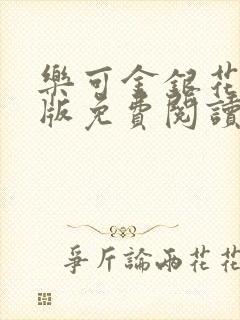 樂可金銀花
版免費閱讀
爭斤論兩花花